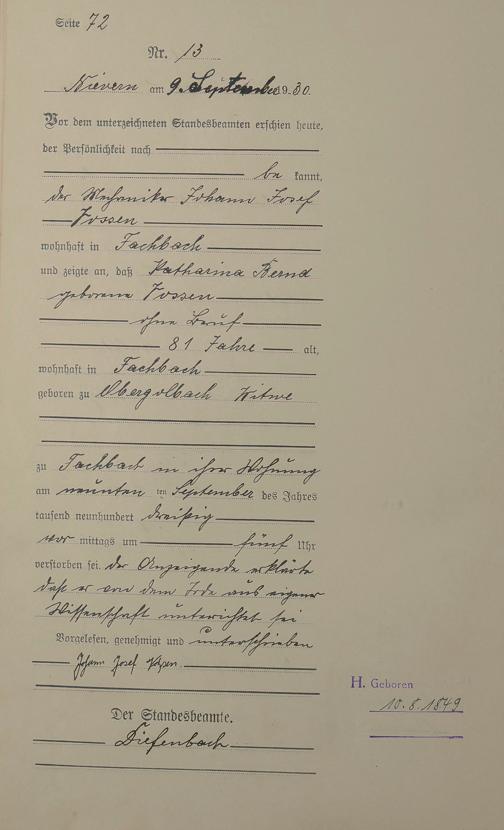 Seite 72
Nr. 13
Nievern am 9. September 1930.
Vor dem unterzeichneten Standesbeamten erschien heute,
der Persönlichkeit nach
be kannt,
der Mechaniker Johann Josef
Vossen
wohnhaft in Fachbach
und zeigte an, daß Katharina Bernd
geborene Vossen
ohne Beruf
81 Jahre alt,
wohnhaft in Fachbach
geboren zu Witwe
zu Fachbach in ihrer Wohnung
am neunten ten September des Jahres
tausend neunhundert dreißig
vor mittags um fünf Uhr
verstorben sei. der Anzeigende erklärte
daß er von dem Tode aus eigener
Wissenschaft unterichtet sei
Vorgelesen, genehmigt und unterschrieben
Johann Josef
H. Geboren
10.8.1849
Der Standesbeamte.
Diefenbach